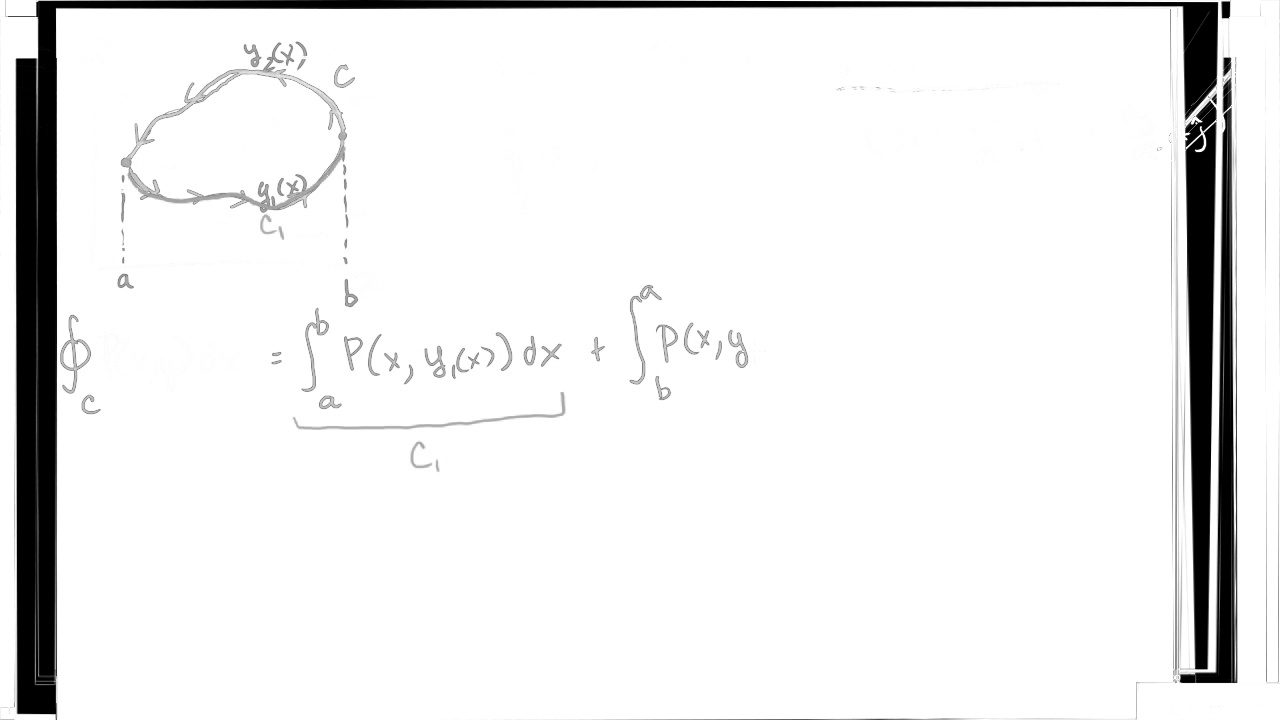 y₂(x)
C
y₁(x)
C₁
a
b
∮_C = ∫_a^b P(x, y₁(x)) dx + ∫_b^a P(x, y
C₁